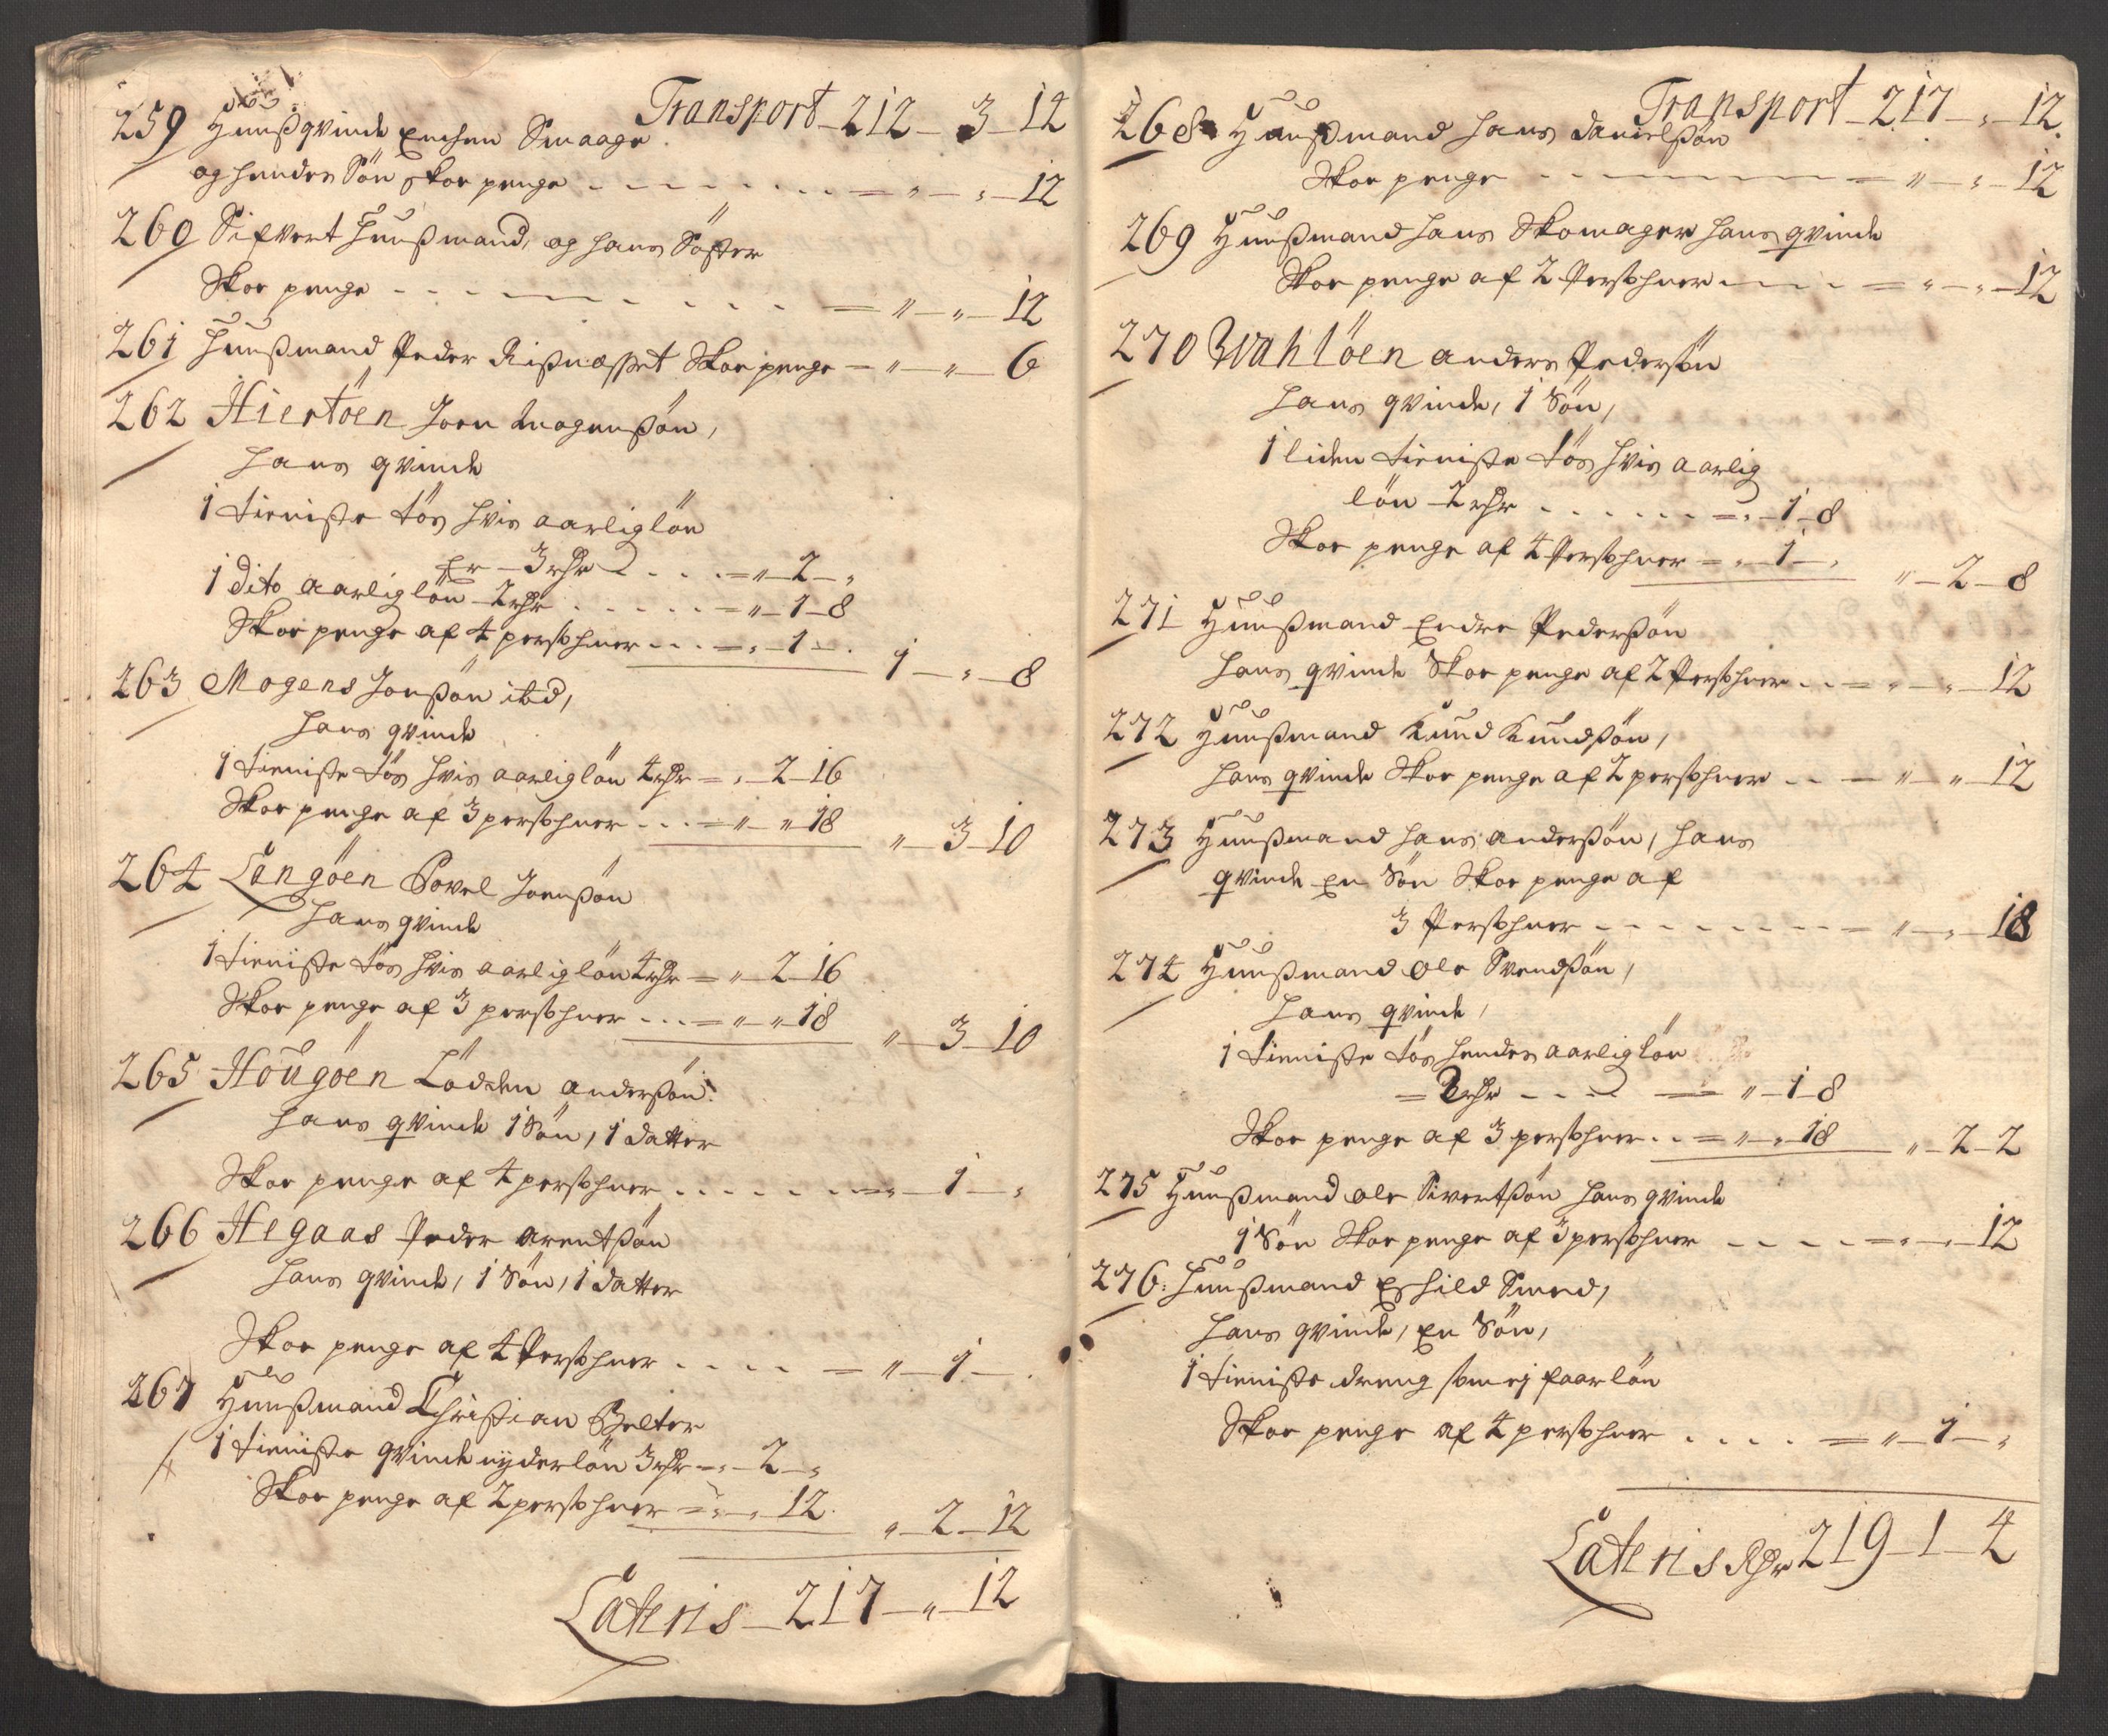 Transport - 212 - 3 - 14
259 Huußqvinde Smaage
og hendes Sön skoe penge - - - = " - " - 12
260 Sifvert Huußmand, og hans Söster
Skoe penge - - - = " - " - 12
261 Huußmand Peder Rißnæsset Skoe penge = " - " - 6
262 Hiertöen Joen Mogenßön,
hans qvinde
1 tieniste tös hvis aarlig lön
er - 3 rdr - - - = " - 2 - "
1 dito aarlig lön 2 rdr - - - = " - 1 - 8
Skoe penge af 4 persohner - - - = " - 1 - "
1 - " - 8
263 Mogens Jonßön ibd,
hans qvinde
1 tieniste tös hvis aarlig lön 4 rdr = " - 2 - 16
Skoe penge af 3 persohner - - - = " - " 18
" - 3 - 10
264 Langöen Povel Joenßön
hans qvinde
1 tieniste tös hvis aarlig lön 4 rdr = " - 2 - 16
Skoe penge af 3 persohner - - - = " - " 18
" - 3 - 10
265 Hougöen Lödden anderßön:
hans qvinde 1 Sön, 1 datter
Skoe penge af 4 persohner - - - = " - 1 - "
266 Hegaas Peder arentßön
hans qvinde, 1 Sön, 1 datter
Skoe penge af 4 Persohner - - - = " - 1 - "
267 Huußmand Christian Belter
1 tieniste qvinde nyder lön 3 rdr = " - 2 - "
Skoe penge af 2 persohner = " - " 12
" - 2 - 12
Lateris - 217 - " - 12
Transport - 217 - " - 12
268 Huußmand hans danielßön
Skoe penge - - - = " - " - 12
269 Huußmand hans Skomager hans qvinde
Skoe penge af 2 Persohner - - - = " - " - 12
270 Wahlöen anders Pederßön
hans qvinde, 1 Sön,
1 liden tieniste tös hvis aarlig
lön 2 rdr - - - = " - 1 - 8
Skoe penge af 4 Persohner = " - 1 - "
" - 2 - 8
271 Huußmand Endre Pederßön
hans qvinde Skoe penge af 2 Persohner - - = " - " - 12
272 Huußmand Knud Knudßön,
hans qvinde Skoe penge af 2 persohner - - = " - " - 12
273 Huußmand hans anderßön, hans
qvinde en Sön Skoe penge af
3 Persohner - - - = " - " - 18
274 Huußmand Ole Svendßön,
hans qvinde,
1 tieniste tös hendes aarlig lön
= 2 rdr - - - = " - 1 - 8
Skoe penge af 3 persohner - - = " - " 18
" - 2 - 2
275 Huußmand ole Sivertßön hans qvinde
1 Sön Skoe penge af 3 persohner - - - = " - " - 12
276: Huußmand Eshild Smed,
hans qvinde, en Sön,
1 tieniste dreng som ej faar lön
Skoe penge af 4 persohner - - - = " - 1 - "
Lateris Rdr 219 - 1 - 4